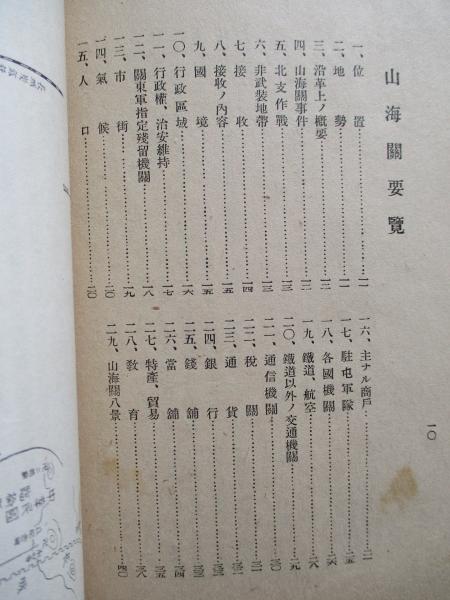 山海關要覽
一、位置……一一
二、地勢……一一
三、沿革上ノ概要……一二
四、山海關事件……一三
五、北支作戰……一三
六、非武装地帶……一三
七、接收……一四
八、接收ノ内容……一五
九、國境……一五
一〇、行政區域……一六
一一、行政權、治安維持……一七
一二、關東軍指定殘留機關……一八
一三、市街……一九
一四、氣候……二〇
一五、人口……二〇
一六、主ナル商戶
一七、駐屯軍隊……二五
一八、各國機關……二六
一九、鐵道、航空……二八
二〇、鐵道以外ノ交通機關……二九
二一、通信機關……三〇
二二、稅關……三一
二三、通貨
二四、銀行
二五、錢舖
二六、當舖……三四
二七、特產、貿易……三五
二八、敎育……三八
二九、山海關八景……四〇
一〇